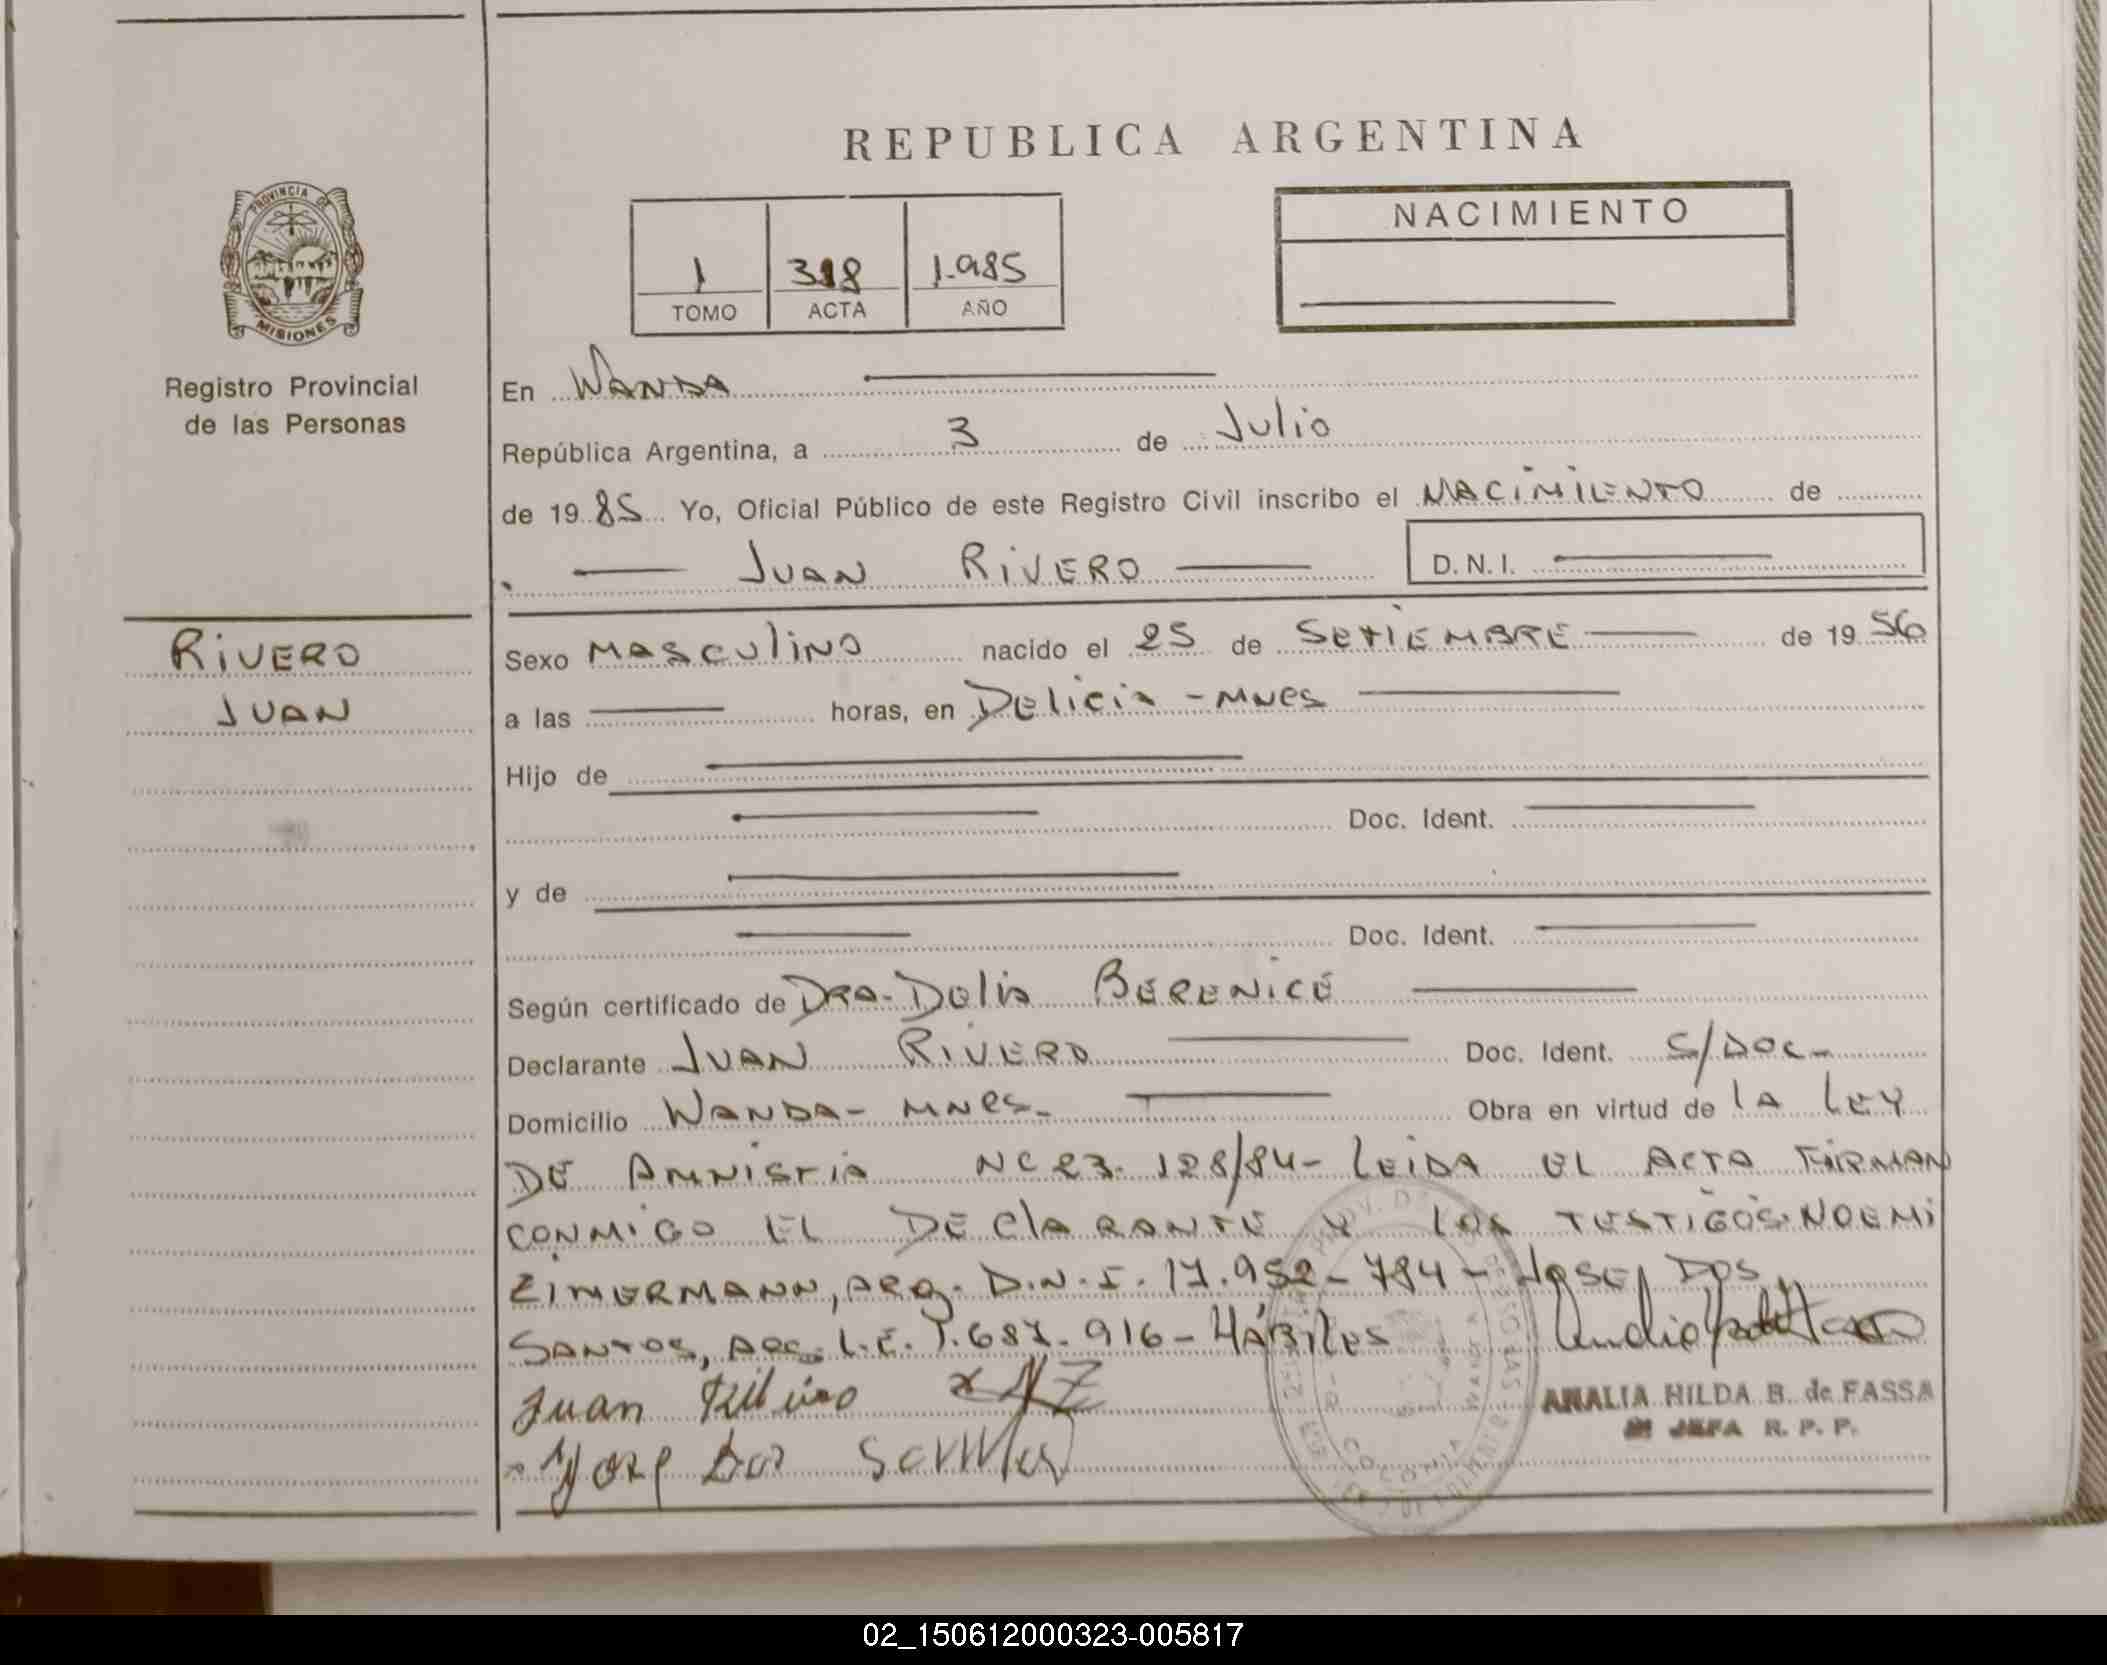 REPUBLICA ARGENTINA
PROVINCIA DE
MISIONES
Registro Provincial
de las Personas
1 318 1.985
TOMO ACTA AÑO
NACIMIENTO
En WANDA
República Argentina, a 3 de Julio
de 1985 Yo, Oficial Público de este Registro Civil inscribo el NACIMIENTO de
JUAN RIVERO D.N.I.
RIVERO
JUAN
Sexo MASCULINO nacido el 25 de SETIEMBRE de 1956
a las horas, en DELICIA - MNES
Hijo de
Doc. Ident.
y de
Doc. Ident.
Según certificado de DRA. DELIA BERENICE
Declarante JUAN RIVERO Doc. Ident. S/DOC-
Domicilio WANDA - MNES- Obra en virtud de LA LEY
DE AMNISTIA 23.128/84- LEIDA EL ACTA FIRMAN
CONMIGO EL DECLARANTE Y LOS TESTIGOS: NOEMI
ZIMERMANN, ARG. D.N.I. 17.952-784- JOSE DOS
SANTOS, ARG. L.E. 7.687.916- HÁBILES
Juan Rivero x NZ
ANALIA HILDA B. de FASSA
JEFA R. P. P.
Jose Dos Santos
02_150612000323-005817